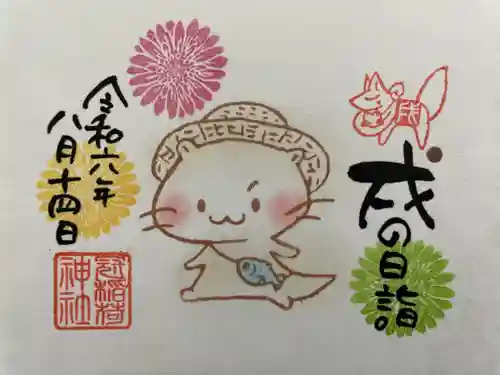 戌の日詣
戌
令和六年
八月十四日
冠稲荷
神社